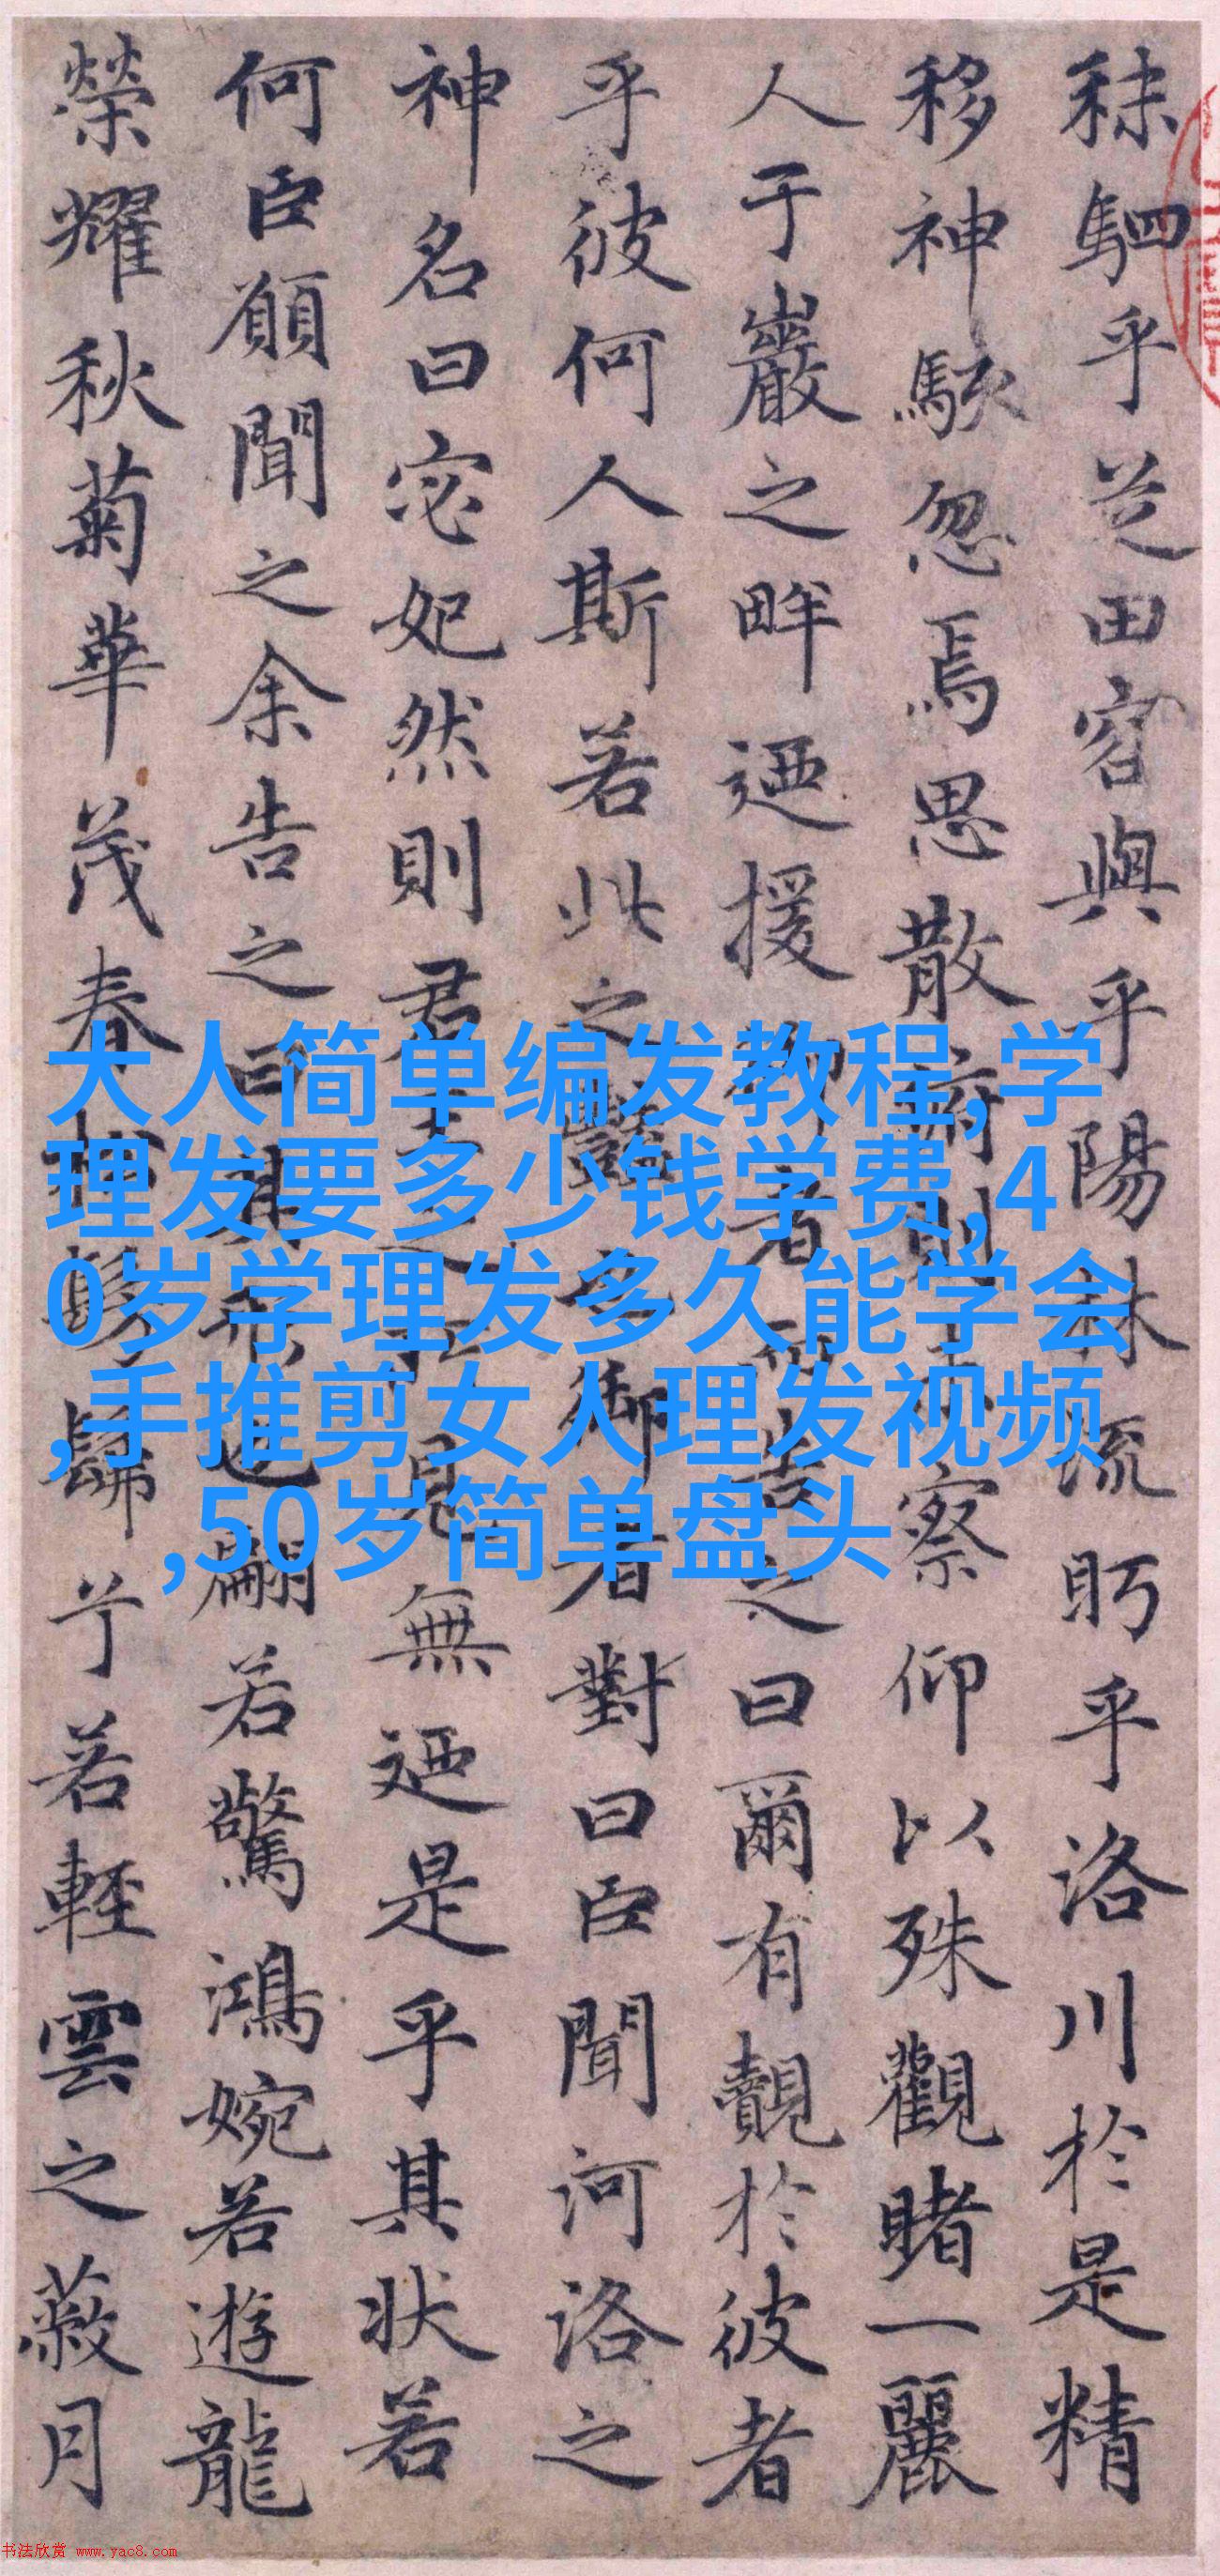 秣駟乎芝田容與乎陽林流眄乎洛川於是精
移神駭忽焉思散俯則未察仰以殊觀睹一麗
人于巖之畔迺援御者而告之曰爾有覿於彼者
乎彼何人斯若此之豔也御者對曰臣聞河洛之
神名曰宓妃然則君王之所見無迺是乎其狀若
何臣願聞之余告之曰其形也翩若驚鴻婉若遊龍
榮耀秋菊華茂春松髣髴兮若輕雲之蔽月
大人简单编发教程,学
理发要多少钱学费,4
0岁学理发多久能学会
,手推剪女人理发视频
,50岁简单盘头
书法欣赏 www.yac8.com